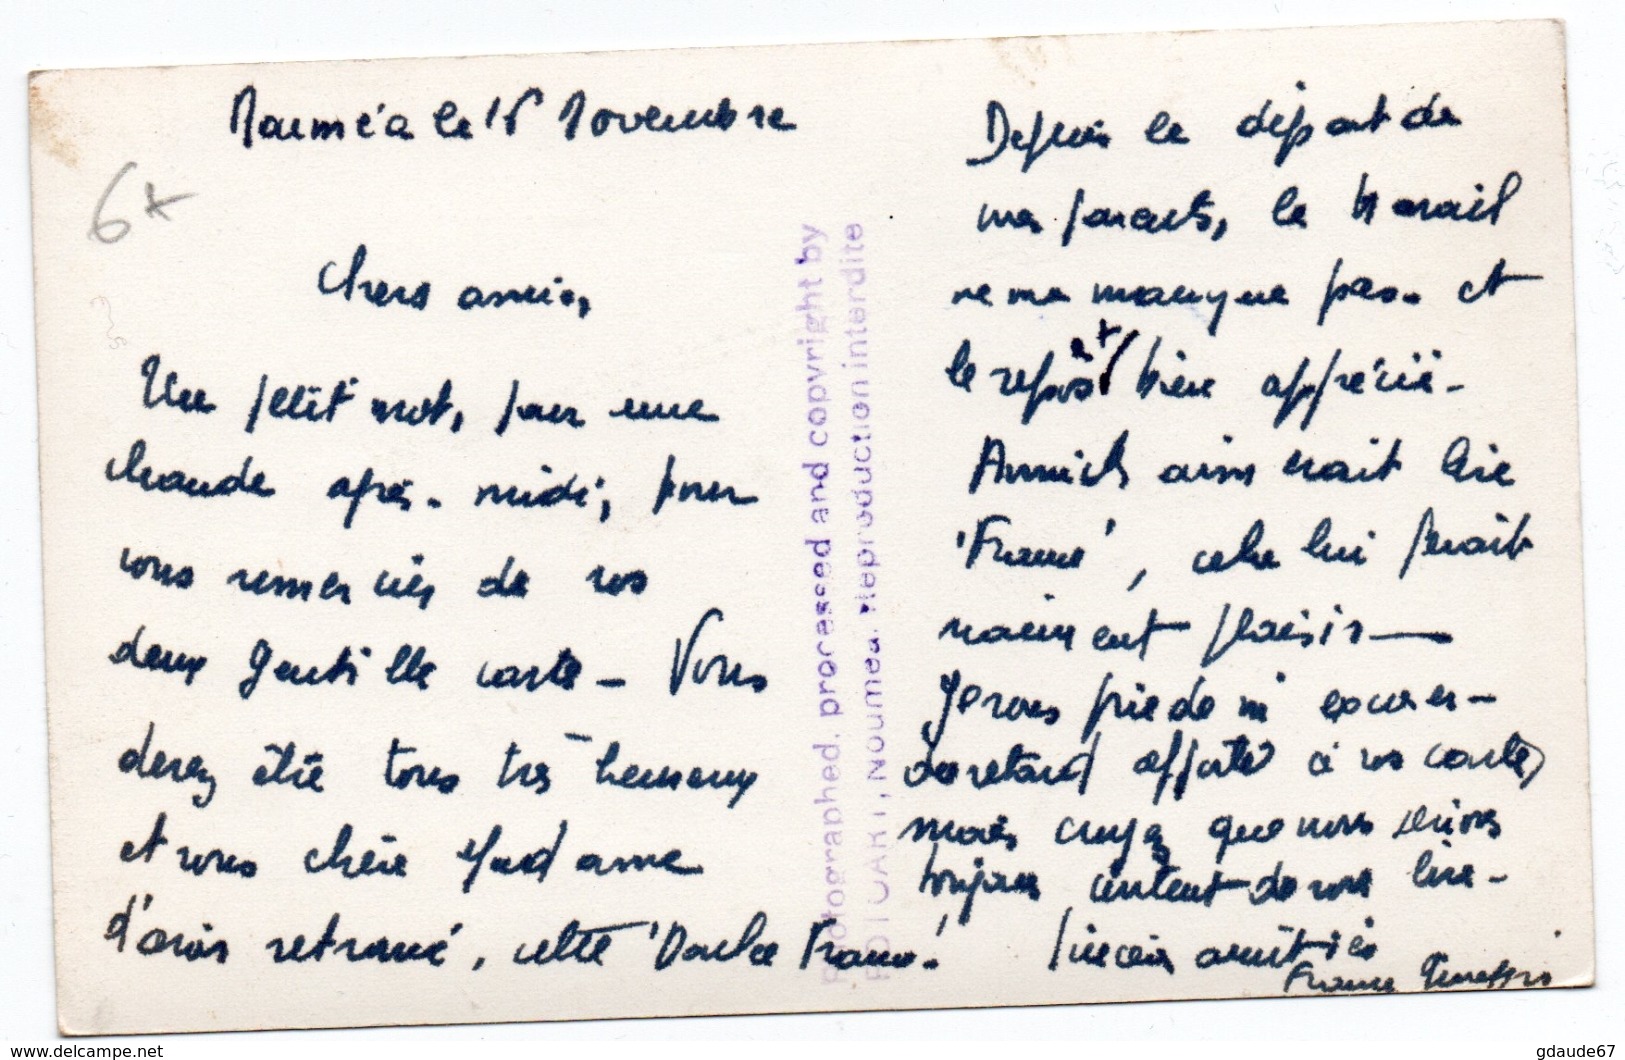 Nouméa le 16 Novembre
6
Chers amis,
Un petit mot, par une
chaude après-midi, pour
vous remerciés de vos
deux gentille carte - Vous
devez être tous très heureux
et vous chère Madame
d'avoir retrouvé, cette 'Douce France'
Photographed, processed and copyright by
FOTOCART, NOUMEA. Reproduction interdite
Depuis le départ de
mes parents, le travail
ne me manque pas. et
le repos est bien apprécié -
Annick aimerait lire
'France', cela lui ferait
vraiment plaisir —
Je vous prie de m'excuser -
du retard apporté à vos cartes,
mais croyez que nous serions
toujours content de vous lire -
Sincère amitiés
France
www.delcampe.net
gdaude67